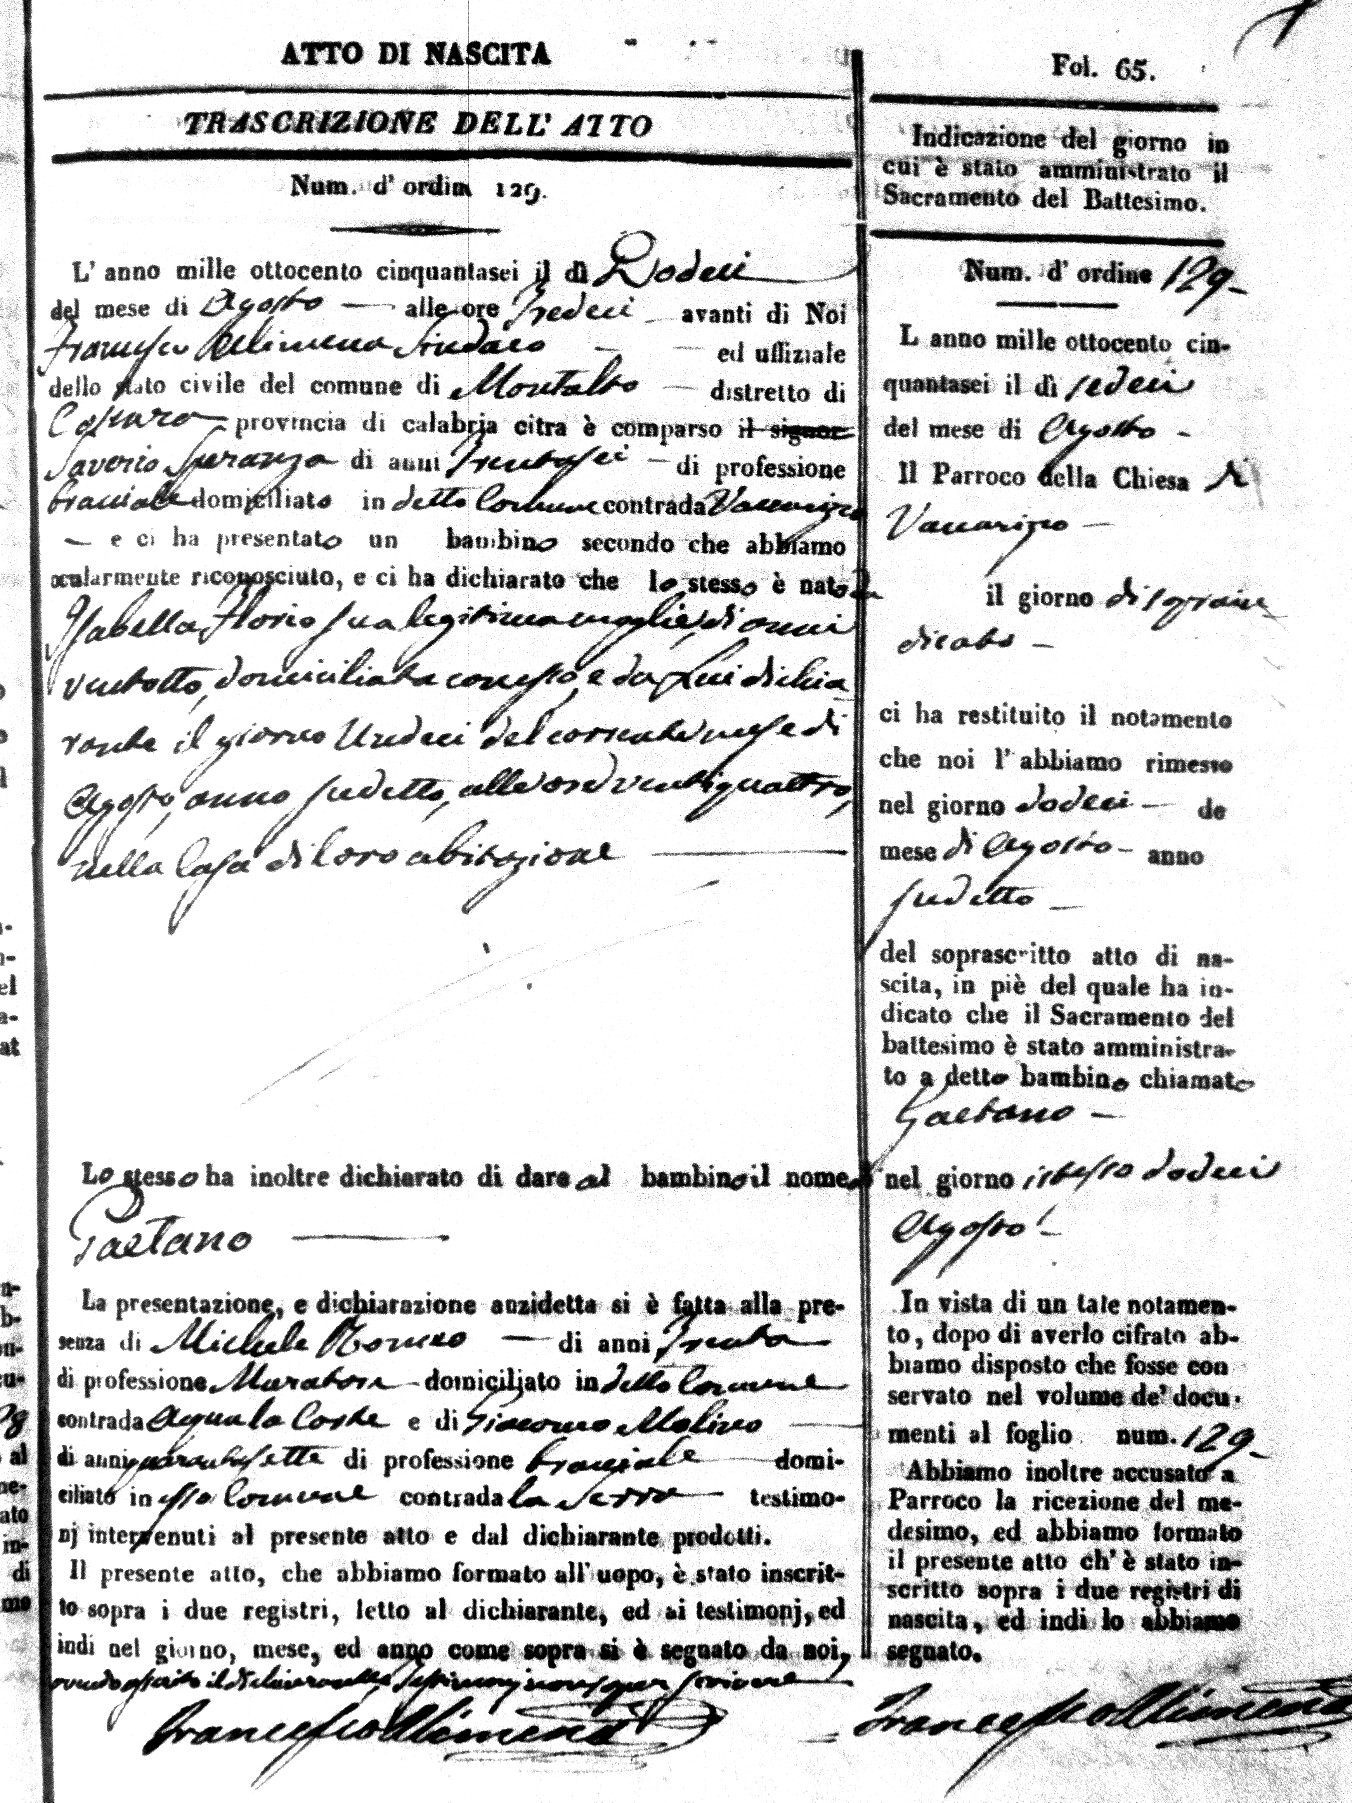 ATTO DI NASCITA
TRASCRIZIONE DELL' ATTO
Num. d' ordin 129.
L' anno mille ottocento cinquantasei il dì Dodeci
del mese di Agosto — alle ore Tredeci — avanti di Noi
Francesco Alimena Sindaco — — ed uffiziale
dello stato civile del comune di Montalto — distretto di
Cosenza provincia di calabria citra è comparso il signor
Saverio Speranza di anni Trentasei — di professione
bracciale domiciliato in detto Comune contrada Vaccarizzo
— e ci ha presentato un bambino secondo che abbiamo
ocularmente riconosciuto, e ci ha dichiarato che lo stesso è nato da
Isabella Florio sua legittima moglie, di anni
ventotto, domiciliata con esso, e da Lui dichia
rante il giorno Undeci del corrente mese di
Agosto, anno sudetto, alle ore ventiquattro,
nella Casa di loro abitazione —
Lo stesso ha inoltre dichiarato di dare al bambino il nome di
Gaetano —
La presentazione, e dichiarazione anzidetta si è fatta alla pre-
senza di Michele — di anni Trenta
di professione Muratore domiciliato in detto Comune
contrada Acqua la Costa e di Giacomo Molino —
di anni quarantasette di professione bracciale — domi-
ciliato in esso Comune contrada la Serra — testimo-
nj intervenuti al presente atto e dal dichiarante prodotti.
Il presente atto, che abbiamo formato all' uopo, è stato inscrit-
to sopra i due registri, letto al dichiarante, ed ai testimonj, ed
indi nel giorno, mese, ed anno come sopra si è segnato da noi,
avendo asserito il dichiarante, e Testimonj non saper scrivere
Francesco Alimena
Fol. 65.
Indicazione del giorno in
cui è stato amministrato il
Sacramento del Battesimo.
Num. d' ordine 129 -
L anno mille ottocento cin-
quantasei il dì sedeci
del mese di Agosto -
Il Parroco della Chiesa di
Vaccarizzo —
il giorno di sopra in
dicato —
ci ha restituito il notamento
che noi l' abbiamo rimesso
nel giorno dodeci — de
mese di Agosto - anno
sudetto —
del soprascritto atto di na-
scita, in piè del quale ha in-
dicato che il Sacramento del
battesimo è stato amministra-
to a detto bambino chiamato
Gaetano —
nel giorno istesso dodeci
Agosto —
In vista di un tale notamen-
to, dopo di averlo cifrato ab-
biamo disposto che fosse con
servato nel volume de' docu-
menti al foglio num. 129 -
Abbiamo inoltre accusato a
Parroco la ricezione del me-
desimo, ed abbiamo formato
il presente atto ch' è stato in-
scritto sopra i due registri di
nascita, ed indi lo abbiamo
segnato.
Francesco Alimena